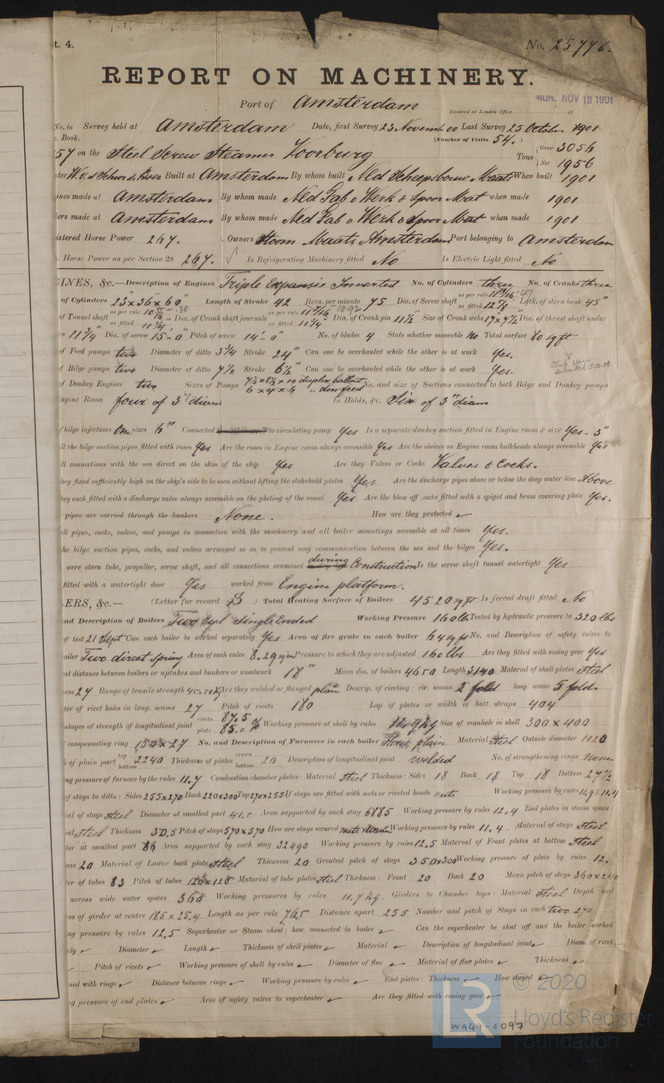 t. 4.
No. 25776.
REPORT ON MACHINERY.
Port of Amsterdam
Received at London Office
MON. NOV 18 1901
No. in Survey held at Amsterdam Date, first Survey 23. November 00 Last Survey 25 October 1901
Book. (Number of Visits 54.)
57 on the Steel Screw Steamer Zoorburg Tons Gross 3056
Net 1956
Built at Amsterdam By whom built Ned Scheepsbouw Maats When built 1901
made at Amsterdam By whom made Ned Fab v Werk & Spoor Mat when made 1901
made at Amsterdam By whom made Ned Fab v Werk & Spoor Mat when made 1901
Horse Power 267. Owners Stoom Maats Amsterdam Port belonging to Amsterdam
Horse Power as per Section 28 267. Is Refrigerating Machinery fitted No Is Electric Light fitted No
INES, &c.—Description of Engines Triple Expansion Inverted No. of Cylinders three No. of Cranks three
of Cylinders 23"x36"x60" Length of Stroke 42 Revs. per minute 75 Dia. of Screw shaft as per rule as fitted Lgth. of stern bush 45"
of Tunnel shaft as per rule as fitted 11 1/4 Dia. of Crank shaft journals as per rule as fitted 11 3/4 Dia. of Crank pin 11 3/4" Size of Crank webs Dia. of thrust shaft under
11 3/4 Dia. of screw 15'-0" Pitch of screw 14'-0" No. of blades 4 State whether moveable No Total surface 80 qft
of Feed pumps two Diameter of ditto 3 3/4 Stroke 24" Can one be overhauled while the other is at work Yes.
of Bilge pumps two Diameter of ditto Stroke Can one be overhauled while the other is at work Yes.
of Donkey Engines two Sizes of Pumps duplex ballast feed No. and size of Suctions connected to both Bilge and Donkey pumps
Engine Room four of 3" diam In Holds, &c. Six of 3" diam
of bilge injections One sizes 6" Connected to circulating pump Yes Is a separate donkey suction fitted in Engine room & size Yes - 3"
all the bilge suction pipes fitted with roses Yes Are the roses in Engine room always accessible Yes Are the sluices on Engine room bulkheads always accessible Yes
all connections with the sea direct on the skin of the ship Yes Are they Valves or Cocks Valves & Cocks.
they fixed sufficiently high on the ship's side to be seen without lifting the stokehold plates Yes Are the discharge pipes above or below the deep water line Above
they each fitted with a discharge valve always accessible on the plating of the vessel Yes Are the blow off cocks fitted with a spigot and brass covering plate Yes.
pipes are carried through the bunkers None. How are they protected ✓
all pipes, cocks, valves, and pumps in connection with the machinery and all boiler mountings accessible at all times Yes.
the bilge suction pipes, cocks, and valves arranged so as to prevent any communication between the sea and the bilges Yes.
were stern tube, propeller, screw shaft, and all connections examined during Construction Is the screw shaft tunnel watertight Yes
fitted with a watertight door Yes worked from Engine platform.
ERS, &c.— (Letter for record S) Total Heating Surface of Boilers 4520 qft Is forced draft fitted No
and Description of Boilers Two Cyl Single Ended Working Pressure 160 lb Tested by hydraulic pressure to 320 lbs
of test 21 Sept Can each boiler be worked separately Yes Area of fire grate in each boiler 64 qft No. and Description of safety valves to
boiler Two direct spring Area of each valve 8.29 qin Pressure to which they are adjusted 160 lbs Are they fitted with easing gear Yes
st distance between boilers or uptakes and bunkers or woodwork 18" Mean dia. of boilers 4650 Length 3140 Material of shell plates Steel
27 Range of tensile strength Are they welded or flanged plain Descrip. of riveting: cir. seams 2 fold long. seams 3 fold.
ter of rivet holes in long. seams 27 Pitch of rivets 180 Lap of plates or width of butt straps 404
ntages of strength of longitudinal joint rivets 87.5 % plate 85.0 % Working pressure of shell by rules Size of manhole in shell 300 x 400
compensating ring 150x27 No. and Description of Furnaces in each boiler Three plain Material Steel Outside diameter 1120
of plain part top bottom 2240 Thickness of plates crown bottom 20 Description of longitudinal joint welded No. of strengthening rings None
ing pressure of furnace by the rules 11.7 Combustion chamber plates: Material Steel Thickness: Sides 18 Back 18 Top 18 Bottom 27 1/2
of stays to ditto: Sides 255x270 Back 220x300 Top 270x255 If stays are fitted with nuts or riveted heads nuts Working pressure by rules 11.9 & 11.4
al of stays Steel Diameter at smallest part 41.5 Area supported by each stay 6885 Working pressure by rules 12.4 End plates in steam space
Steel Thickness 30.5 Pitch of stays 570x570 How are stays secured Working pressure by rules 11.4 Material of stays Steel
ter at smallest part 86 Area supported by each stay 32490 Working pressure by rules 12.5 Material of Front plates at bottom Steel
ess 20 Material of Lower back plate Steel Thickness 20 Greatest pitch of stays 350x300 Working pressure of plate by rules 12.
ter of tubes 83 Pitch of tubes 120x120 Material of tube plates Steel Thickness: Front 20 Back 20 Mean pitch of stays 360x240
across wide water spaces 360 Working pressures by rules 11.7 kg. Girders to Chamber tops: Material Steel Depth and
ss of girder at centre 185x25.4 Length as per rule 765 Distance apart 255 Number and pitch of Stays in each two 270
ng pressure by rules 12.5 Superheater or Steam chest; how connected to boiler ✓ Can the superheater be shut off and the boiler worked
ly ✓ Diameter ✓ Length ✓ Thickness of shell plates ✓ Material ✓ Description of longitudinal joint ✓ Diam. of rivet
Pitch of rivets ✓ Working pressure of shell by rules ✓ Diameter of flue ✓ Material of flue plates ✓ Thickness ✓
ned with rings ✓ Distance between rings ✓ Working pressure by rules ✓ End plates: Thickness ✓ How stayed ✓
ng pressure of end plates ✓ Area of safety valves to superheater ✓ Are they fitted with easing gear ✓
© 2020
LR
Lloyd's Register
Foundation
WA49-0097